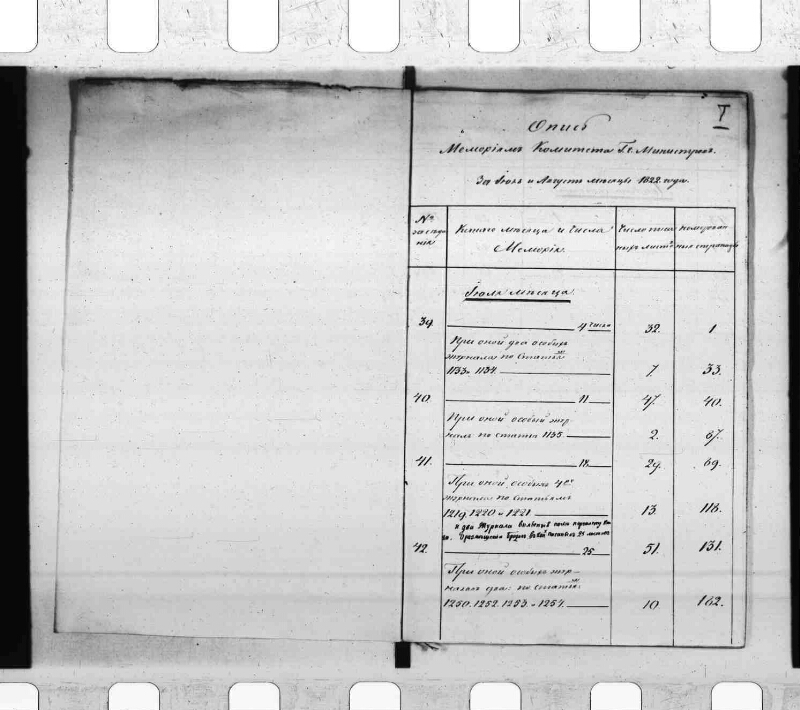 I
Опись
Меморіямъ Комитета Гг. Министровъ.
За Іюль и Августъ мѣсяцы 1822 года.
№ засѣда нія
Котораго мѣсяца и числа Меморія.
Число писа ныхъ листовъ
нумерован ныя страницы
Іюля мѣсяца
39. 4 число 32. 1
При оной два особыхъ
журнала по статьямъ
1133 и 1134. 7. 33.
40. 11 47. 40.
При оной особый жур
налъ по статьѣ 1135 2. 87.
41. 18. 29. 89.
При оной особыхъ 4ре
журнала по статьямъ
1219. 1220 и 1221 13. 118.
и два Журнала
42. 25 51. 131.
При оной особыхъ жур-
налов два: по статьямъ
1250. 1252. 1253. и 1254. 10. 182.